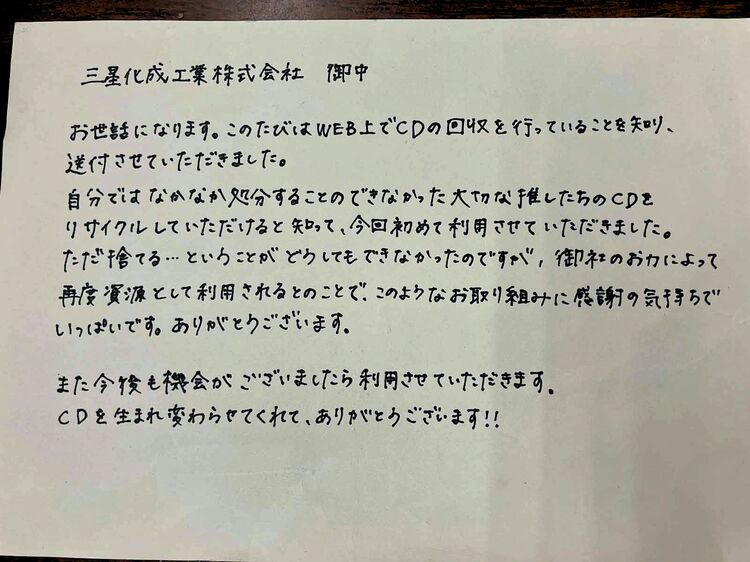 三星化成工業株式会社 御中
お世話になります。このたびはWEB上でCDの回収を行っていることを知り、
送付させていただきました。
自分ではなかなか処分することのできなかった大切な推したちのCDを
リサイクルしていただけると知って、今回初めて利用させていただきました。
ただ捨てる…ということがどうしてもできなかったのですが、御社のお力によって
再度資源として利用されるとのことで、このようなお取り組みに感謝の気持ちで
いっぱいです。ありがとうございます。
また今後も機会がございましたら利用させていただきます。
CDを生まれ変わらせてくれて、ありがとうございます!!